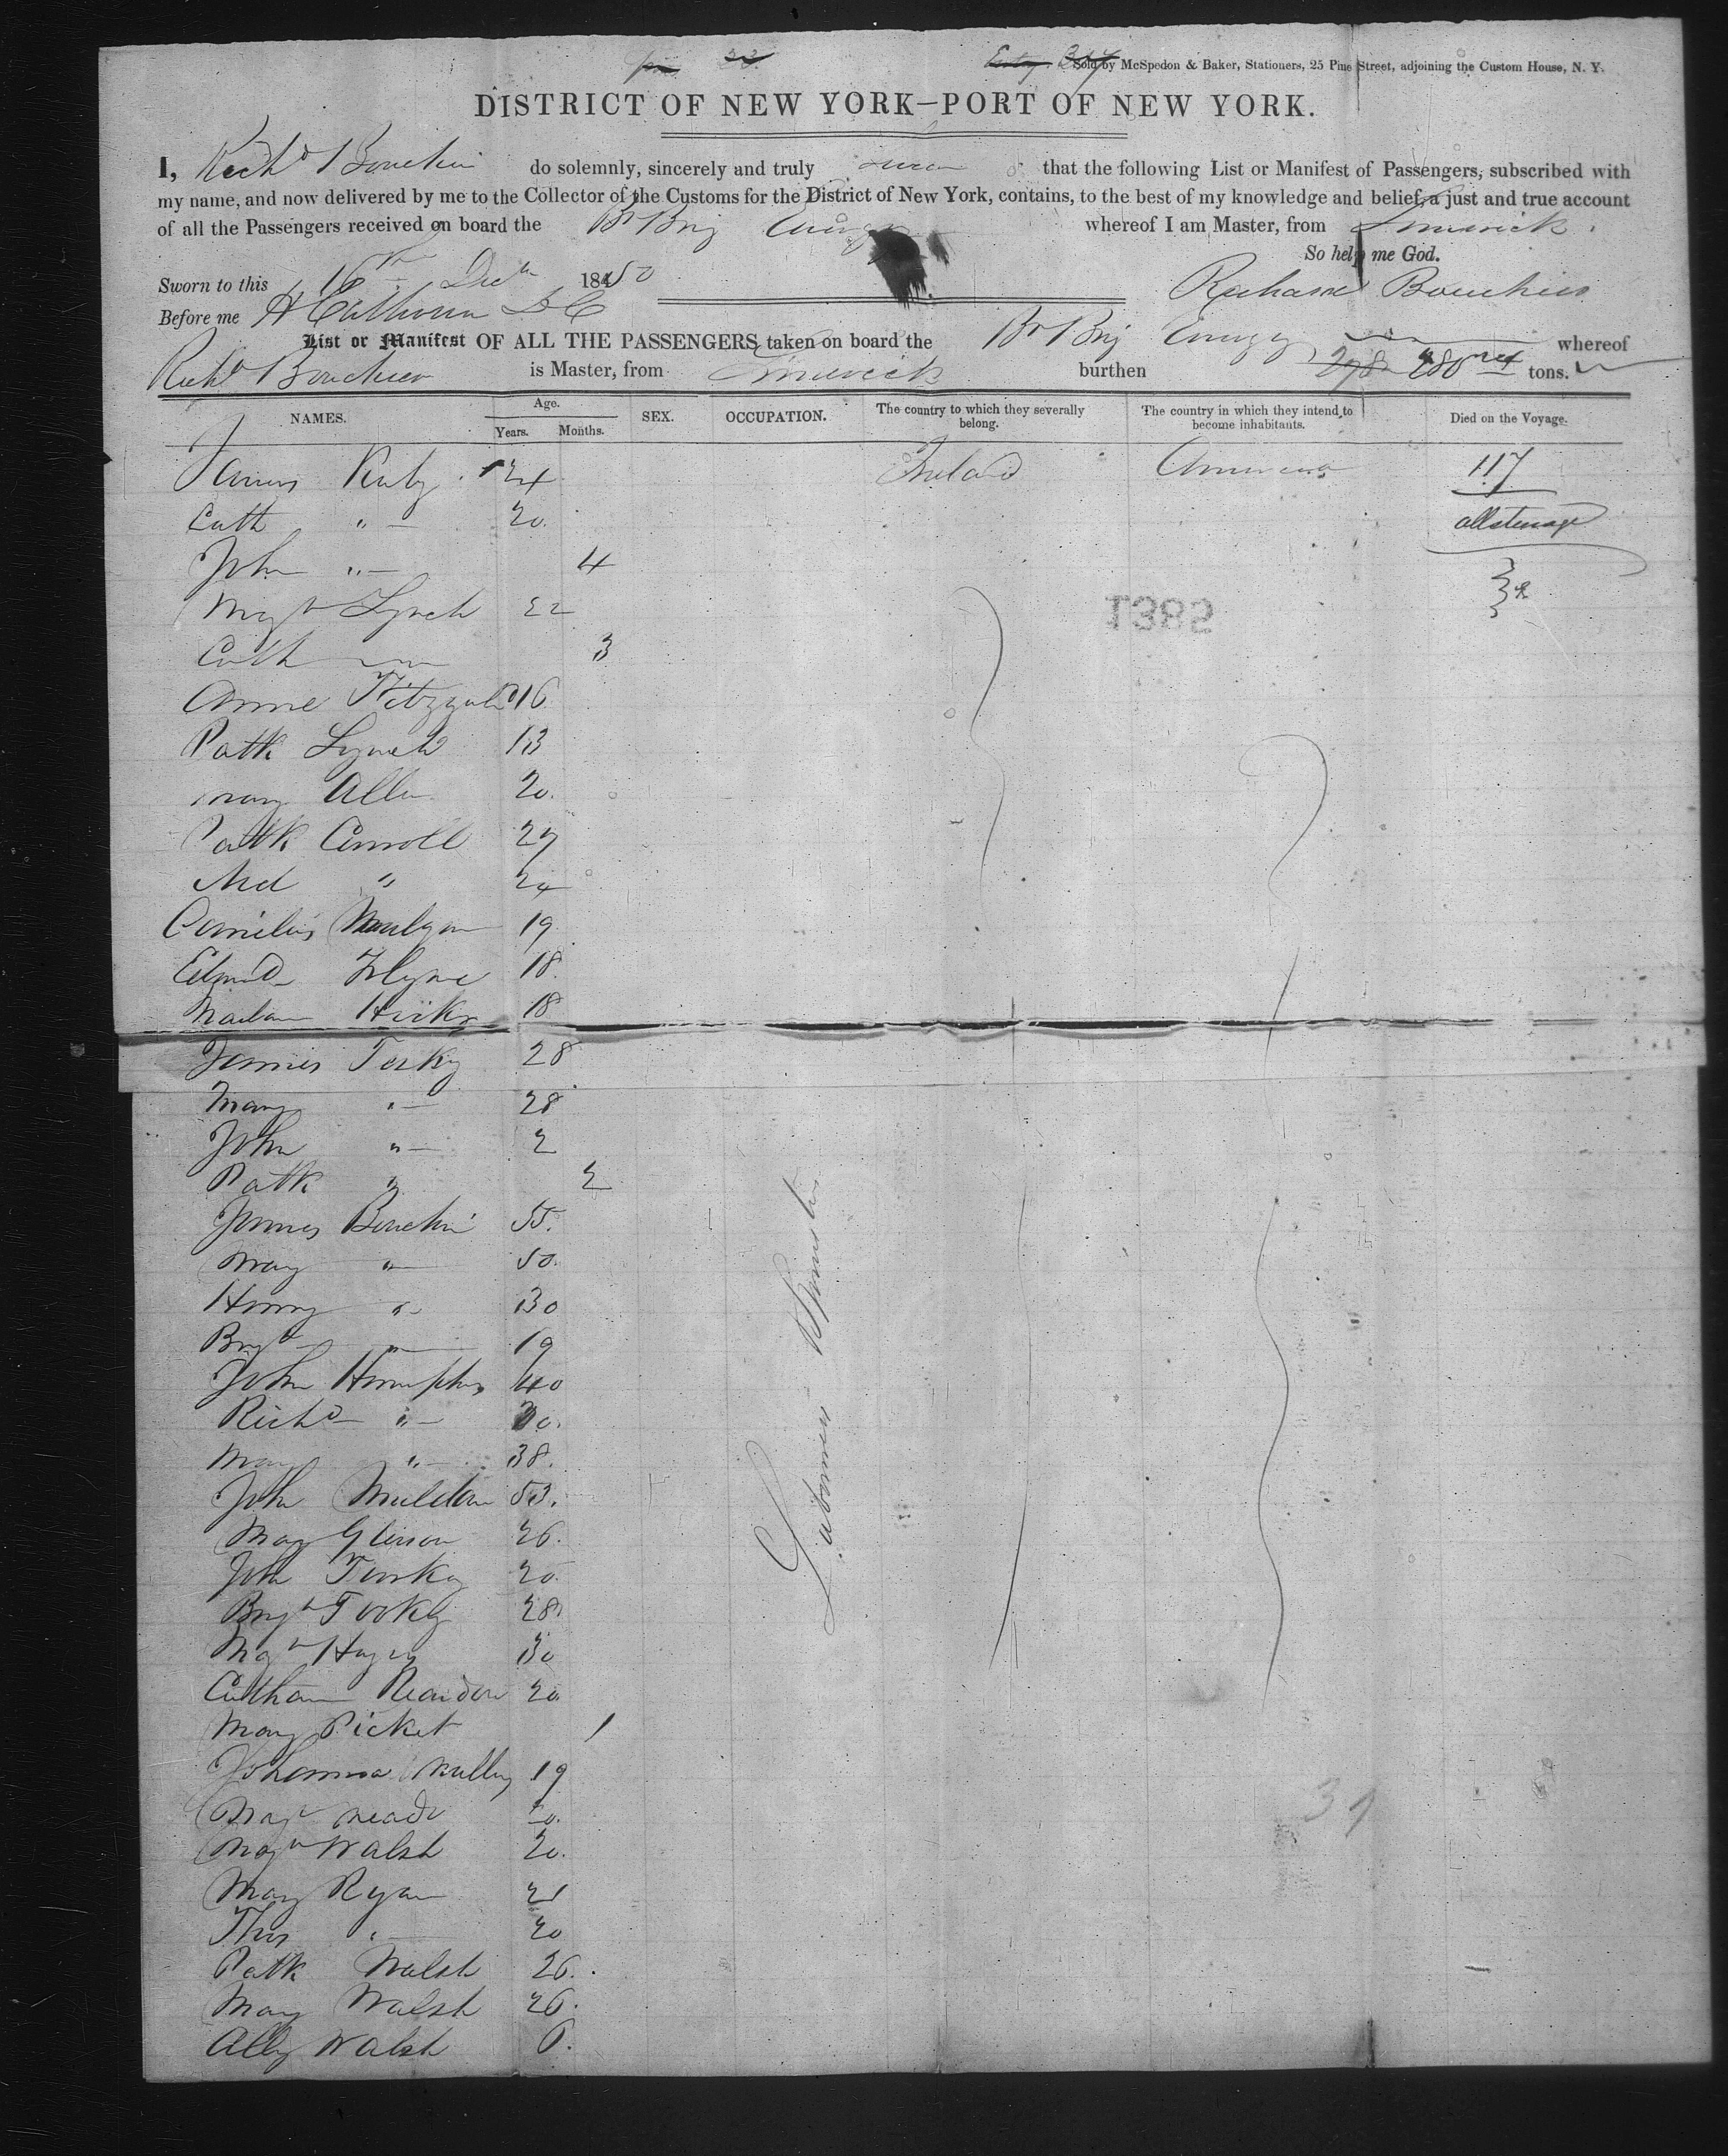 Sold by McSpedon & Baker, Stationers, 25 Pine Street, adjoining the Custom House, N. Y.
DISTRICT OF NEW YORK—PORT OF NEW YORK.
I, Richd Bouchier do solemnly, sincerely and truly swear that the following List or Manifest of Passengers, subscribed with
my name, and now delivered by me to the Collector of the Customs for the District of New York, contains, to the best of my knowledge and belief, a just and true account
of all the Passengers received on board the Br Brig whereof I am Master, from Limerick.
So help me God.
Sworn to this 16th Decr 1850
Richard Bouchier
Before me A Calhoun D C
List or Manifest OF ALL THE PASSENGERS taken on board the Br Brig whereof
Richd Bouchier is Master, from Limerick burthen 280 tons.
NAMES. Age. Years. Months. SEX. OCCUPATION. The country to which they severally belong. The country in which they intend to become inhabitants. Died on the Voyage.
James 24 Ireland America 117
Cath " 20. all steerage
John " 4
Mgt Lynch 22
1382
Cath 3
Anne Fitzgerald 16
Patk Lynch 13
Mary Allen 20.
Patk Carroll 27
Md " 24
Cornelius 19
Edmd Flyne 18.
Hicks 18
James Torky 28
Mary " 28
John " 2
Patk " 2
James Bouchier 55.
Mary " 50.
Henry " 30
Bryt " 19
John Humphrs 40
Richd " 30.
Mary " 38.
John Muldon 53.
Mary Gleeson 26.
John 20.
Brgt Tooky 28
Mgt 30
Catham Reardon 20
Mary Picket 1
Johanna 19
Mgt Meade
Mgt Walsh 20.
Mary Ryan 21
Thos " 20
Patk Walsh 26.
Mary Walsh 26.
Ally Walsh 6.
Labourers Spinsters
39